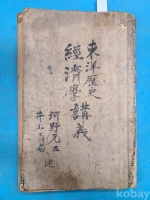 東洋歷史
經濟學講義
河野元三
井上▢▢ 述
kobay